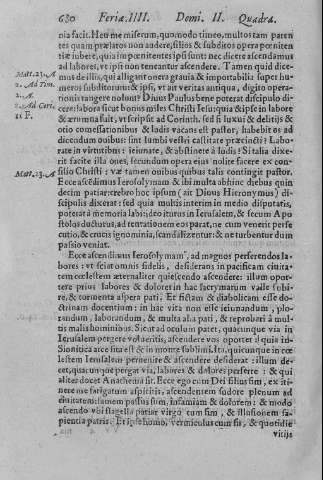 680 Feriæ. IIII. Domi. II. Quadra.
nia facit. Heu me miserum, quo modo timeo, multos tam paren
tes quam prælatos non audere, filios & subditos opera pœniten
tiæ iubere, quia impœnitentes ipsi sunt: nec dicere ascendamus
ad labores, vt ipsi non teneantur ascendere. Tamen quid dice-
mus de illis, qui alligant onera grauia & importabilia super hu
meros subditorum: & ipsi, vt ait veritas antiqua, digito opera-
tionis tangere nolunt? Diuus Paulus bene poterat discipulo di-
cere: labora sicut bonus miles Christi Iesu: quia & ipse in labore
& ærumna fuit, vt scripsit ad Corinth. sed si luxui & delitijs &
otio comessationibus & ludis vacans est pastor, habebit os ad
dicendum ouibus: sint lumbi vestri castitate præcincti? Labora-
te in virtutem: ieiunate, & abstinete à ludis? Si talia dixe-
rit facite illa ones, secundum opera eius nolite facere ex con-
silio Christi: væ tamen ouibus quibus talis contingit pastor.
Ecce ascēdimus Ierosolymam & ibi multa abhinc diebus quin
decim patiar: crebro hoc ipsum (ait Diuus Hieronymus) di-
scipulis dixerat: sed quia multis interim in medio disputatis,
poterat à memoria labi: ideo iturus in Ierusalem, & secum Apo
stolos ducturus, ad tentationem eos parat, ne cum venerit perse
cutio, & crucis ignominia, scandalizentur: & ne turbentur dum
passio veniat.
Ecce ascendimus Ierosolymam, ad magnos perferendos la-
bores: vt sciat omnis fidelis, desiderans in pacificam ciuita-
tem cœlestem æternaliter quiescendo ascendere: illum opor-
tere prius labores & dolores in hac lacrymarum valle subi-
re, & tormenta aspera pati. Et fictam & diabolicam esse do-
ctrinam docentium: in hac via non esse ieiunandum, plo-
randum, laborandum, & multa alia pati, & reprobari à mul-
tis malis hominibus. Sicut ad oculum patet, quacunque via in
Ierusalem pergere volueritis, ascendere vos oportet: quia in
Sion itica ciuitas est & in monte sublimi. Ita, quicunque in cœ
lestem Ierusalem peruenire & ascendere desiderat: illum de-
cet, quacunque pergat via, labores & dolores perferre: & qui
aliter docet Anathema sit. Ecce ego cum Dei filius sim, ex iti-
nere me fatigatum aspicitis, ascendentem sudore plenum ad
ciuitatem: famem passus sum, infamiam & dolorem: & modo
ascendo vbi flagella patiar virgo cum sim, & illusionem sa-
pientia patris. Et ipse homo, vermiculus cum sit, & quotidie
vitijs
Matt. 23. A
2. Ad Tim.
2. A.
2. Ad Cori.
11 F.
Matt. 23. A